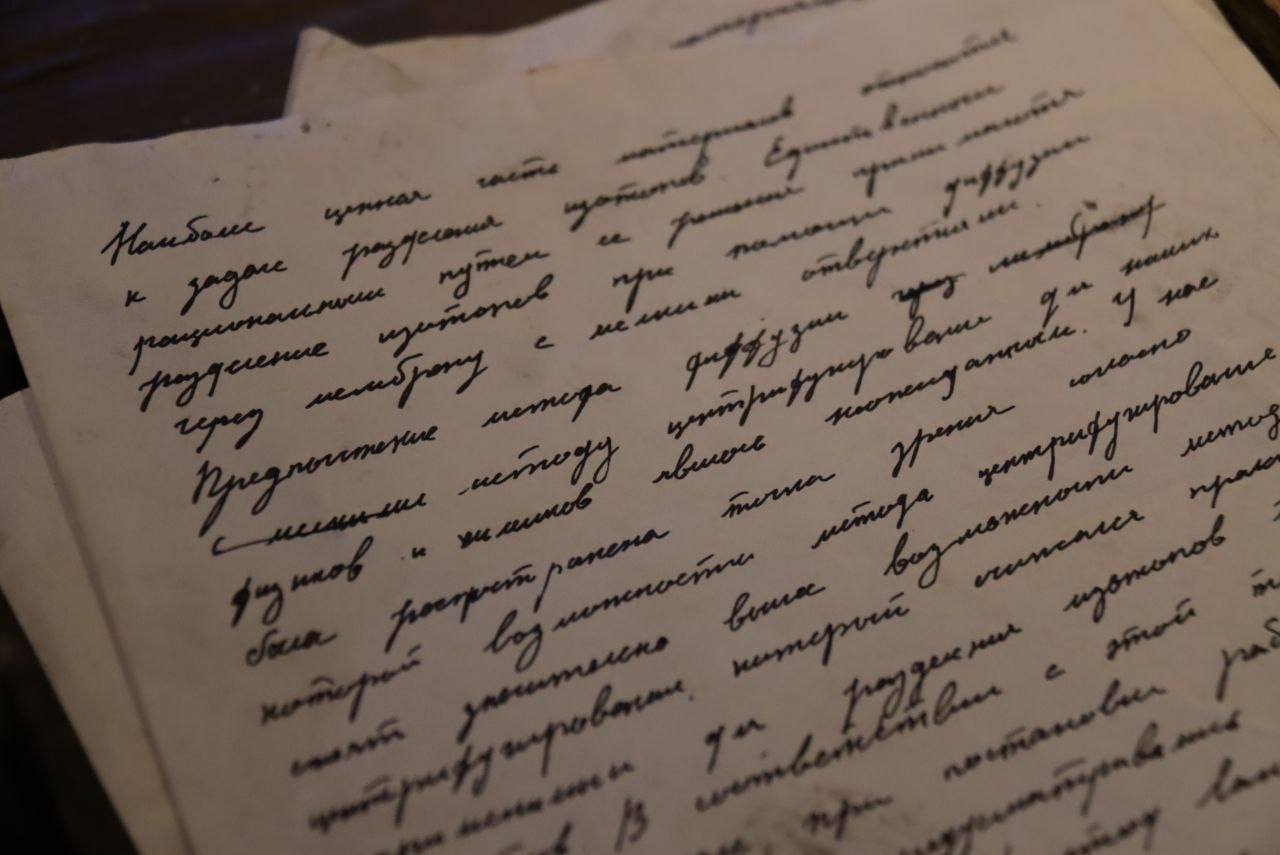 материал
Наиболее ценная часть материалов относится
к задаче разделения изотопов. Единственным
рациональным путем ее решения принимается
разделение изотопов при помощи диффузии
через мембрану с мелкими отверстиями.
Предпочтение метода диффузии через мембрану
с мелкими методу центрифугирование для наших
физиков и химиков явилось неожиданным. У нас
была распространена точка зрения согласно
которой возможности метода центрифугирование
стоят значительно выше возможности метод
центрифугирования, который считался практ
для разделения изотопов
В соответствии с этой
при постановки раб